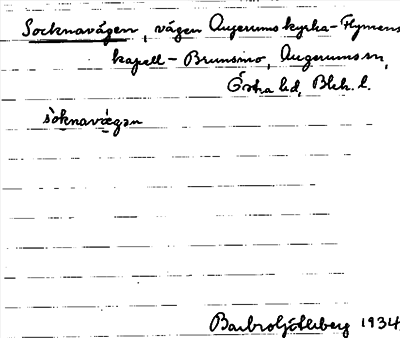 Socknavägen, vägen Augerums kyrka - Flymens
kapell - Brunsmo, Augerums sn,
Östra hd, Blek. l.
soknavægən
Barbro Götlberg 1934